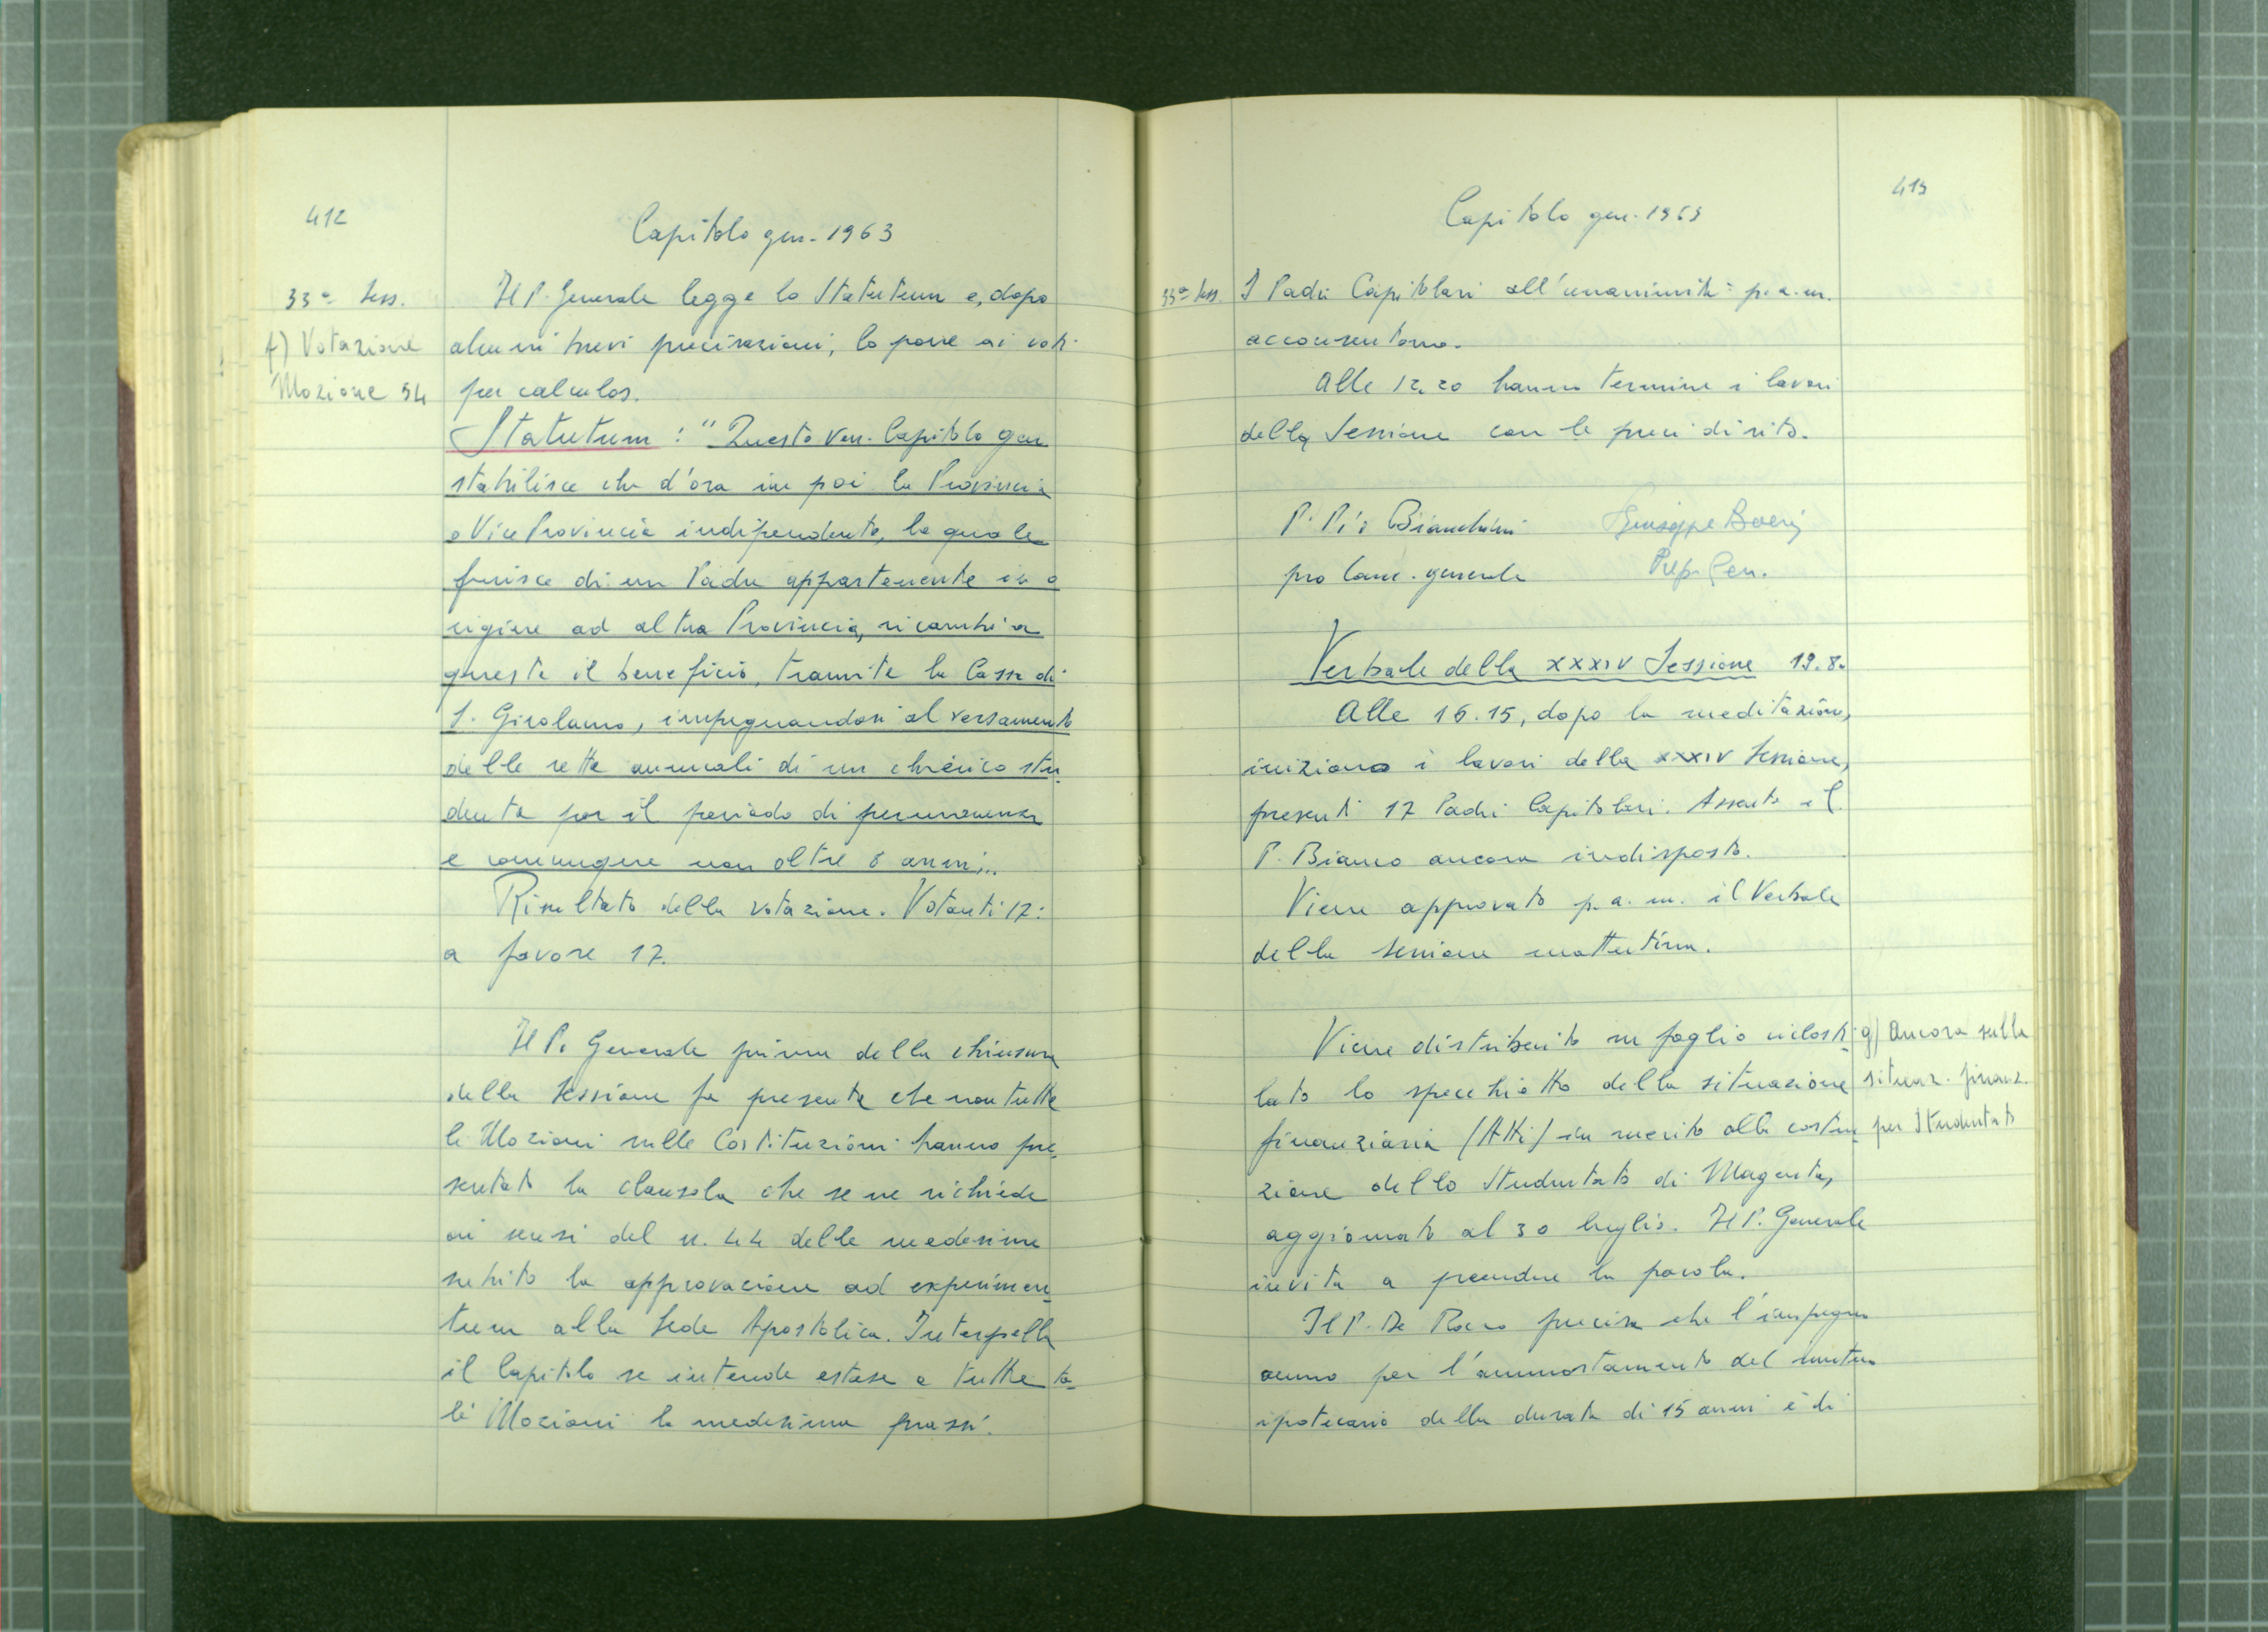 412
Capitolo gen. 1963
33ª Sess.
f) Votazione
Mozione 54
Il P. Generale legge lo Statutum e, dopo
alcuni brevi precisazioni, lo pone ai voti
per calculos.
Statutum: "Questo Ven. Capitolo gen
stabilisce che d'ora in poi la Provincia
o Vice Provincia indipendente, la quale
fruisce di un Padre appartenente in o
rigine ad altra Provincia, ricambi a
questa il beneficio, tramite la Cassa di
S. Girolamo, impegnandosi al versamento
delle rette annuali di un chierico stu
dente per il periodo di permanenza
e comunque non oltre 8 anni".
Risultato della votazione. Votanti 17:
a favore 17.
Il P. Generale prima della chiusura
della Sessione fa presente che non tutte
le Mozioni sulle Costituzioni hanno pre
sentato la clausola che se ne richiede
ai sensi del n. 44 delle medesime
subito la approvazione ad experimen
tum alla Sede Apostolica. Interpella
il Capitolo se intende estesa a tutte ta
li Mozioni la medesima prassi.
413
Capitolo gen. 1963
33ª Sess.
I Padri Capitolari all'unanimità p.a.m.
acconsentono.
Alle 12,20 hanno termine i lavori
della Sessione con le preci di rito.
P. Pio Bianchini
pro Canc. generale
Giuseppe Boeris
Prep. Gen.
Verbale della XXXIV Sessione 19.8.
Alle 16.15, dopo la meditazione,
iniziano i lavori della XXXIV Sessione,
presenti 17 Padri Capitolari. Assente il
P. Bianco ancora indisposto.
Viene approvato p.a.m. il Verbale
della sessione mattutina.
g) Ancora sulla
situaz. finanz.
per Studentato
Viene distribuito su foglio ciclosti
lato lo specchietto della situazione
finanziaria (Atti) in merito alla costru
zione dello Studentato di Magenta,
aggiornato al 30 luglio. Il P. Generale
invita a prendere la parola.
Il P. De Rocco precisa che l'impegno
annuo per l'ammortamento del mutuo
ipotecario della durata di 15 anni è di